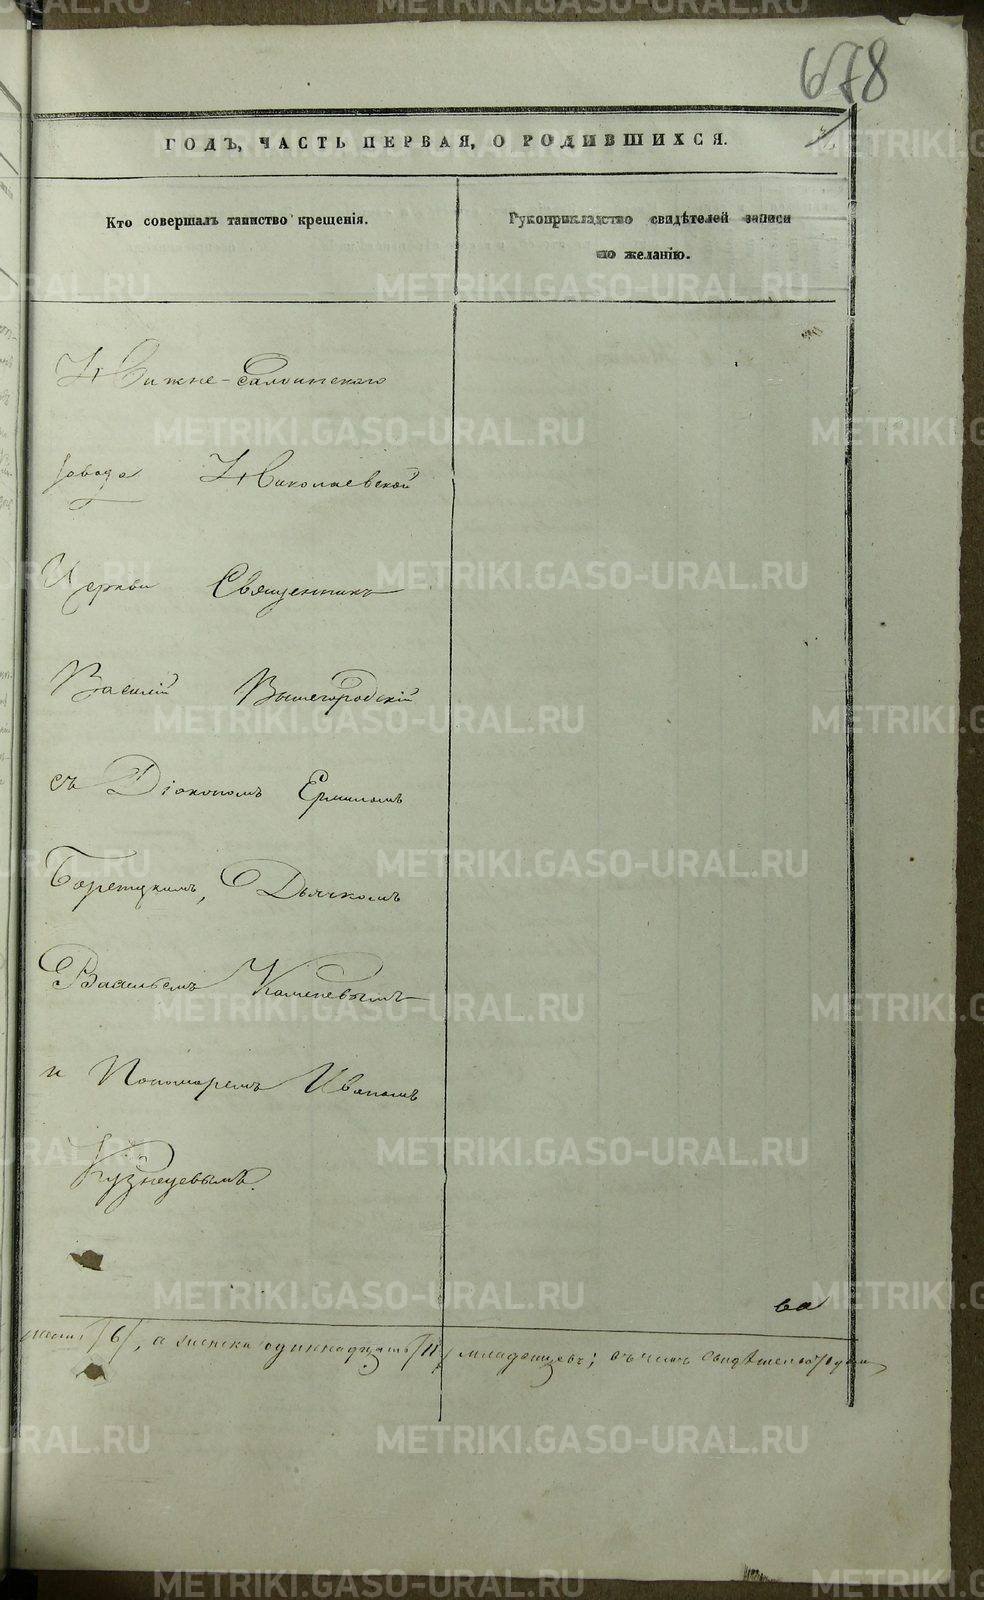 678
ГОДЪ, ЧАСТЬ ПЕРВАЯ, О РОДИВШИХСЯ.
Кто совершалъ таинство крещенія.
Рукоприкладство свидѣтелей записи
по желанію.
Нижне-Салдинскаго
завода Николаевской
Церкви Священникъ
Василій Вышегородскій
съ Діакономъ Ермиломъ
Борецкимъ, Дьячкомъ
Васильемъ Каменевымъ
и Пономаремъ Иваномъ
Кузнецовымъ.
ва
/6/, а женска одиннадцать /11/ младенцевъ; въ чемъ свидѣтельствуемъ
METRIKI.GASO-URAL.RU